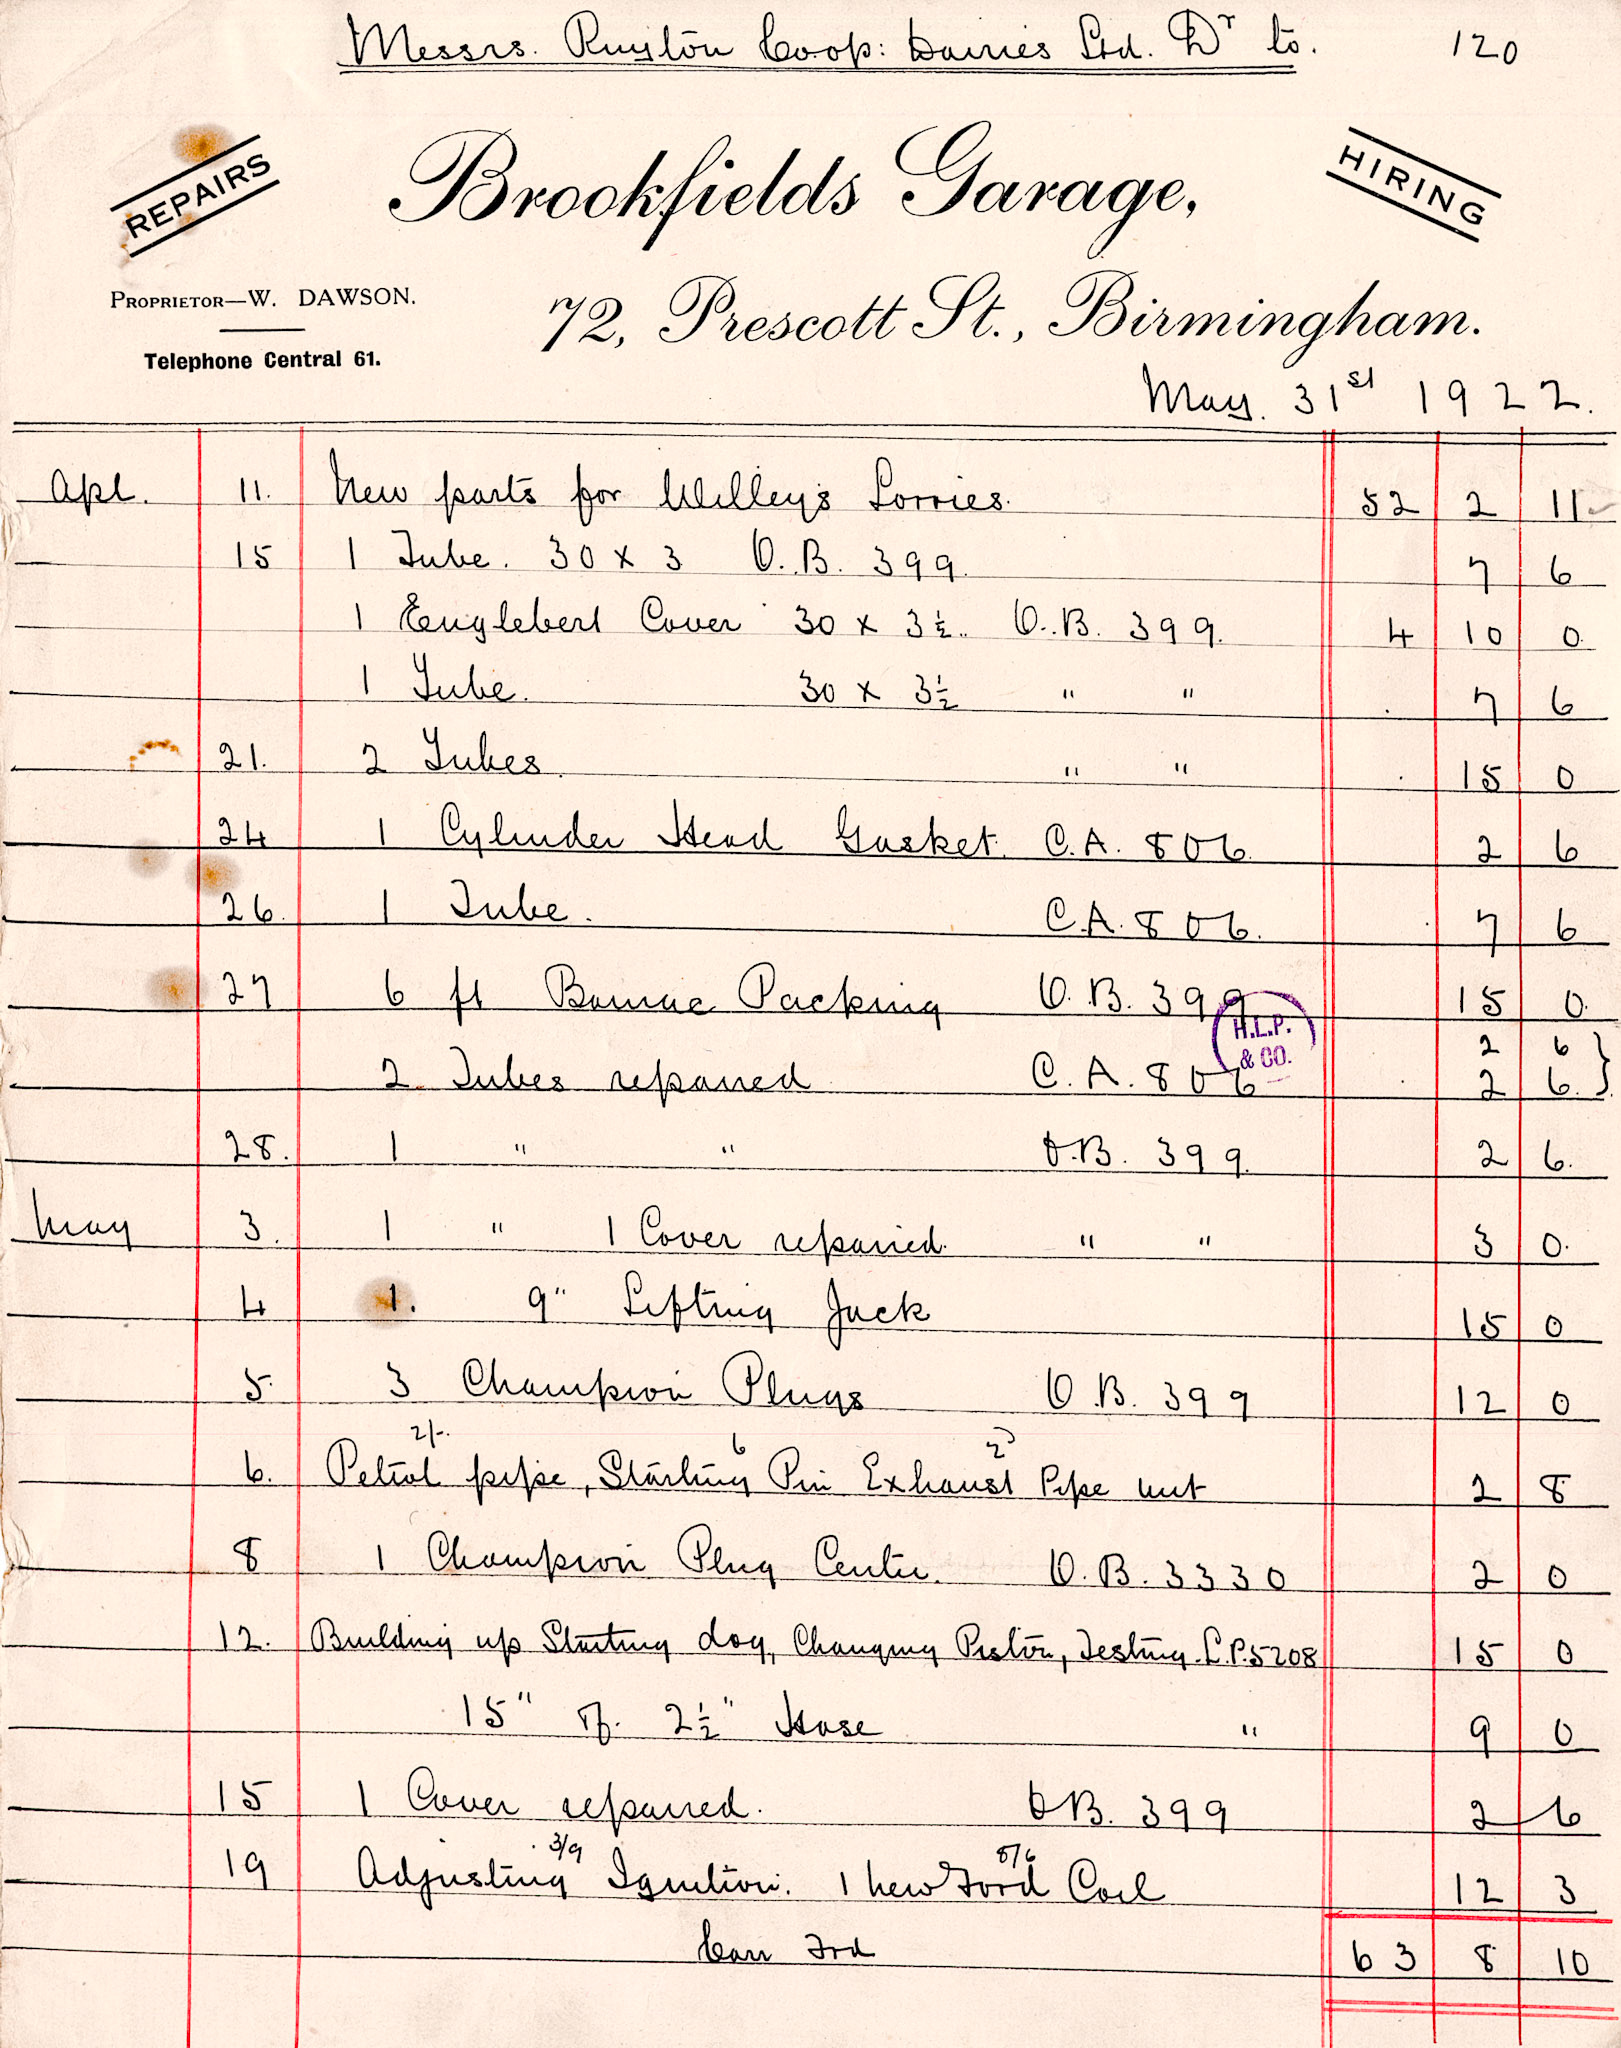 Messrs. Ruyton Co.op: Dairies Ltd. Dr to. 120
REPAIRS
Brookfields Garage,
HIRING
PROPRIETOR—W. DAWSON.
72, Prescott St., Birmingham.
Telephone Central 61.
May. 31st 1922.
Apl. 11. New parts for Willey's Lorries. 52 2 11
15 1 Tube. 30 x 3 O.B. 399. 7 6
1 Englebert Cover 30 x 3½. O.B. 399. 4 10 0
1 Tube. 30 x 3½ " " 7 6
21. 2 Tubes. " " 15 0
24 1 Cylinder Head Gasket. C.A. 806. 2 6
26. 1 Tube. C.A. 806. 7 6
27 6 ft Packing O.B. 399 15 0
H.L.P. & CO.
2 6
2 Tubes repaired C.A. 806 2 6.
28. 1 " " O.B. 399. 2 6.
May 3. 1 " 1 Cover repaired. " " 3 0.
4 1. 9" Lifting Jack 15 0
5 3 Champion Plugs O.B. 399 12 0
2/-. 6 2
6. Petrol pipe, Starting Pin Exhaust Pipe nut 2 8
8 1 Champion Plug Centre. O.B. 3330 2 0
12. Building up Starting dog, Changing Piston, Testing. L.P. 5208 15 0
15" of. 2½" Hose " 9 0
15 1 Cover repaired. O.B. 399 2 6
3/9 8/6
19 Adjusting Ignition. 1 New Ford Coil 12 3
Carr Frd 63 8 10